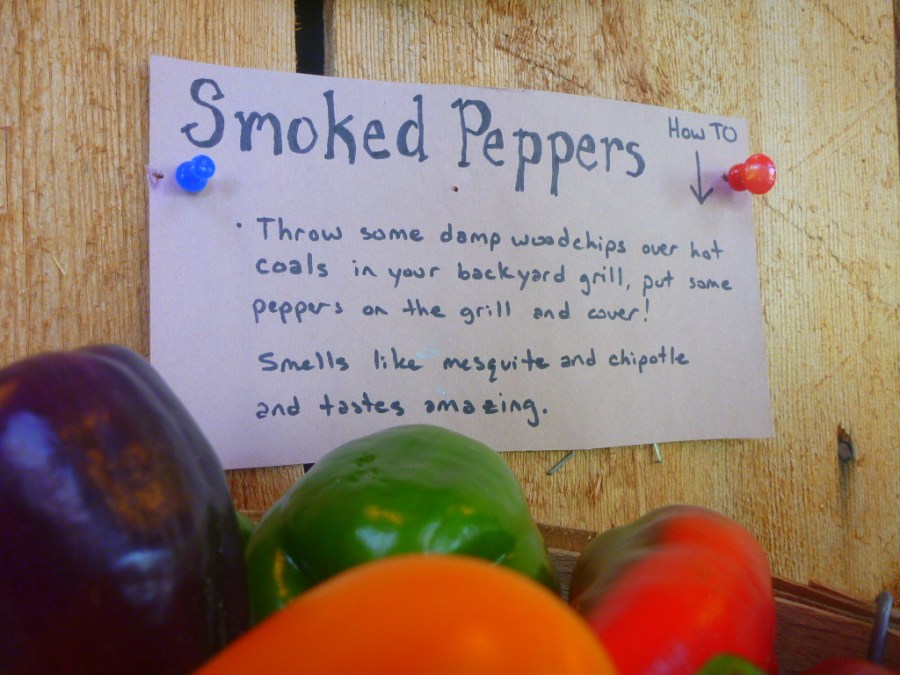 Smoked Peppers
How TO
· Throw some damp woodchips over hot
coals in your backyard grill, put some
peppers on the grill and cover!
Smells like mesquite and chipotle
and tastes amazing.